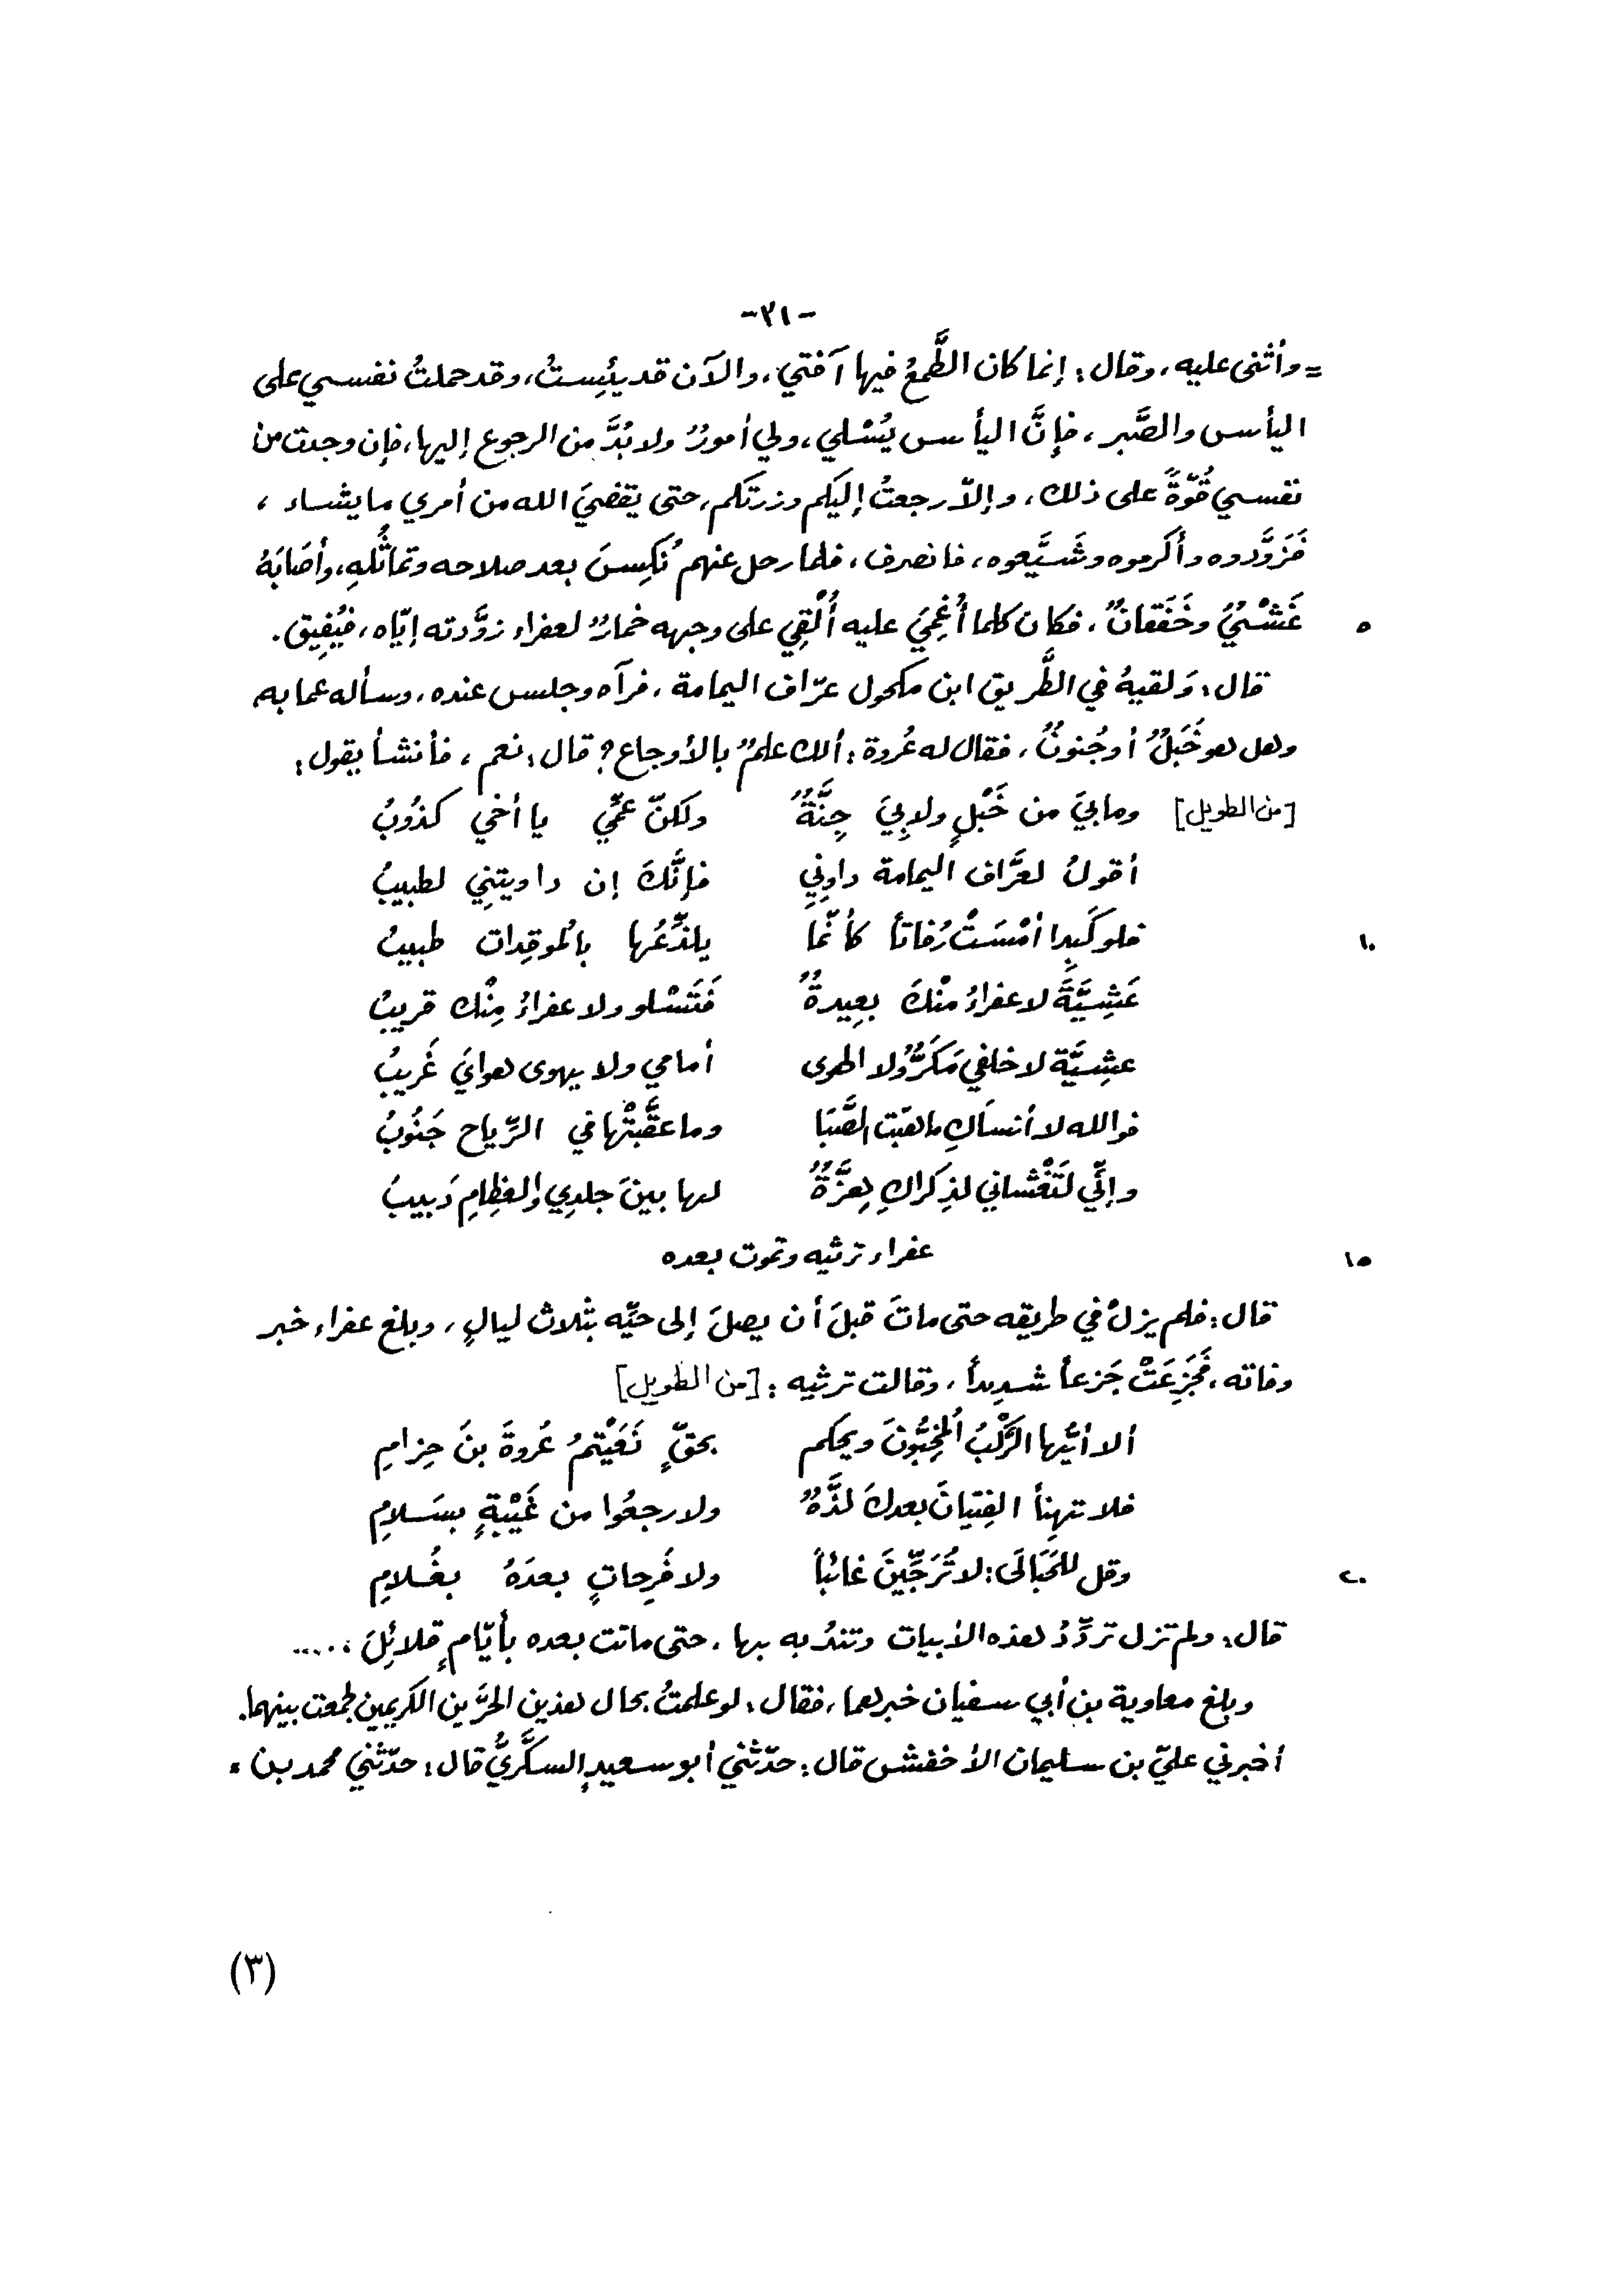 -٢١-
= وأثنى عليه، وقال: إنما كان الطَّمعُ فيها آفتي، والآن قد يئِستُ، وقد حملتُ نفسي على
اليأس والصَّبر، فإنَّ اليأس يُسْلي، ولي أمورٌ ولا بُدَّ من الرجوع إليها، فإن وجدت من
نفسي قُوّةً على ذلك، وإلاّ رجعتُ إليكم وزرتكم، حتى يقضيَ الله من أمري ما يشاء،
فَزَوَّدوه وأكرموه وشَيَّعوه، فانصرف، فلما رحل عنهم نُكِسَ بعد صلاحه وتماثُلهِ، وأصَابَهُ
٥ غَشْيٌ وخَفَقانٌ، فكان كلما أُغمِيَ عليه أُلْقِي على وجهه خمارٌ لعفراء زوَّدته إيّاه، فيُفِيق.
قال: وَلقيهُ في الطَّريق ابن مكحول عرّاف اليمامة، فرآه وجلس عنده، وسأله عما به
وهل هو خَبَلٌ أو جُنونٌ، فقال له عُروة: ألك علمٌ بالأوجاع؟ قال: نعم، فأنشأ يقول:
[من الطويل] ومابيَ من خَبْلٍ ولا بِيَ جِنَّةٌ ولكنّ عمِّي يا أخي كذُوبُ
أقولُ لعرَّاف اليمامة داوِنِي فإنَّكَ إن داويتنِي لطبيبُ
١٠ فلو كَبِدا أمْسَتْ رُفاتاً كأنّما يلذِّعُها بالموقِدات طبيبُ
عَشِيَّةَ لا عفراءُ منْكَ بعِيدةٌ فَتَسْلو ولا عفراءُ مِنْك قريبُ
عشِيَّة لا خلفي مَكَرٌّ ولا الهوى أمامي ولا يهوى هوايَ غَريبُ
فوالله لا أنسَاكِ ما هبّت الصَّبَا وما عقَّبتْها في الرِّياح جَنُوبُ
وإنِّي لَتَغْشاني لذِكراكِ هِزَّةٌ لها بينَ جلدِي والعِظامِ دَبيبُ
١٥ عفراء ترثيه وتموت بعده
قال: فلم يزلْ في طريقه حتى ماتَ قبلَ أن يصلَ إلى حيِّه بثلاث ليالٍ، وبلغ عفراء خبر
وفاته، فجَزِعَتْ جَزعاً شديداً، وقالت ترثيه: [من الطويل]
ألا أيُّها الرَّكْبُ المُخِبُّونَ ويحكم بحقٍّ نَعَيْتمُ عُروةَ بنَ حِزامِ
فلا تهنِأ الفِتيانَ بعدكَ لذَّةٌ ولا رجعُوا من غَيْبةٍ بسَلامِ
٢٠ وقل للحَبَالَى: لا تُرَجِّينَ غائباً ولا فَرِحاتٍ بعدَهُ بغُلامِ
قال: ولم تزل تردِّدُ هذه الأبيات وتندُبه بها، حتى ماتت بعده بأيّامٍ قلائِلَ، .....
وبلغ معاوية بن أبي سفيان خبرهما، فقال: لو علمتُ بحال هذين الحرَّين الكريمين لجمعت بينهما.
أخبرني عليّ بن سليمان الأخفش قال: حدّثني أبو سعيدٍ السكَّريُّ قال: حدّثني محمد بن =
(٣)